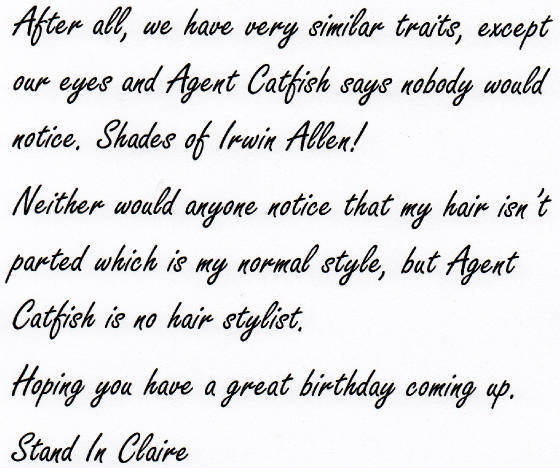 After all, we have very similar traits, except
our eyes and Agent Catfish says nobody would
notice. Shades of Irwin Allen!
Neither would anyone notice that my hair isn't
parted which is my normal style, but Agent
Catfish is no hair stylist.
Hoping you have a great birthday coming up.
Stand In Claire